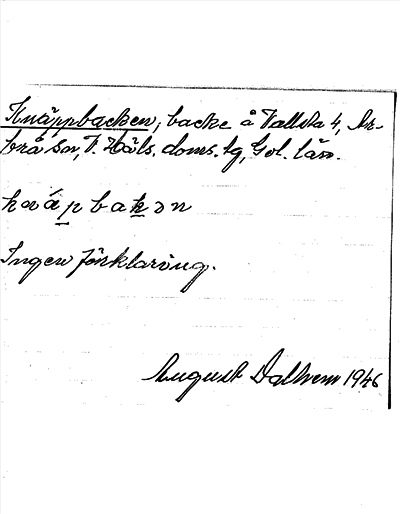 Knäppbacken, backe å Vallsta 4, Ar-
brå sn, V. Häls. doms. lg, Gvl. län.
knäpbakən
Ingen förklaring.
August Dalhem 1946